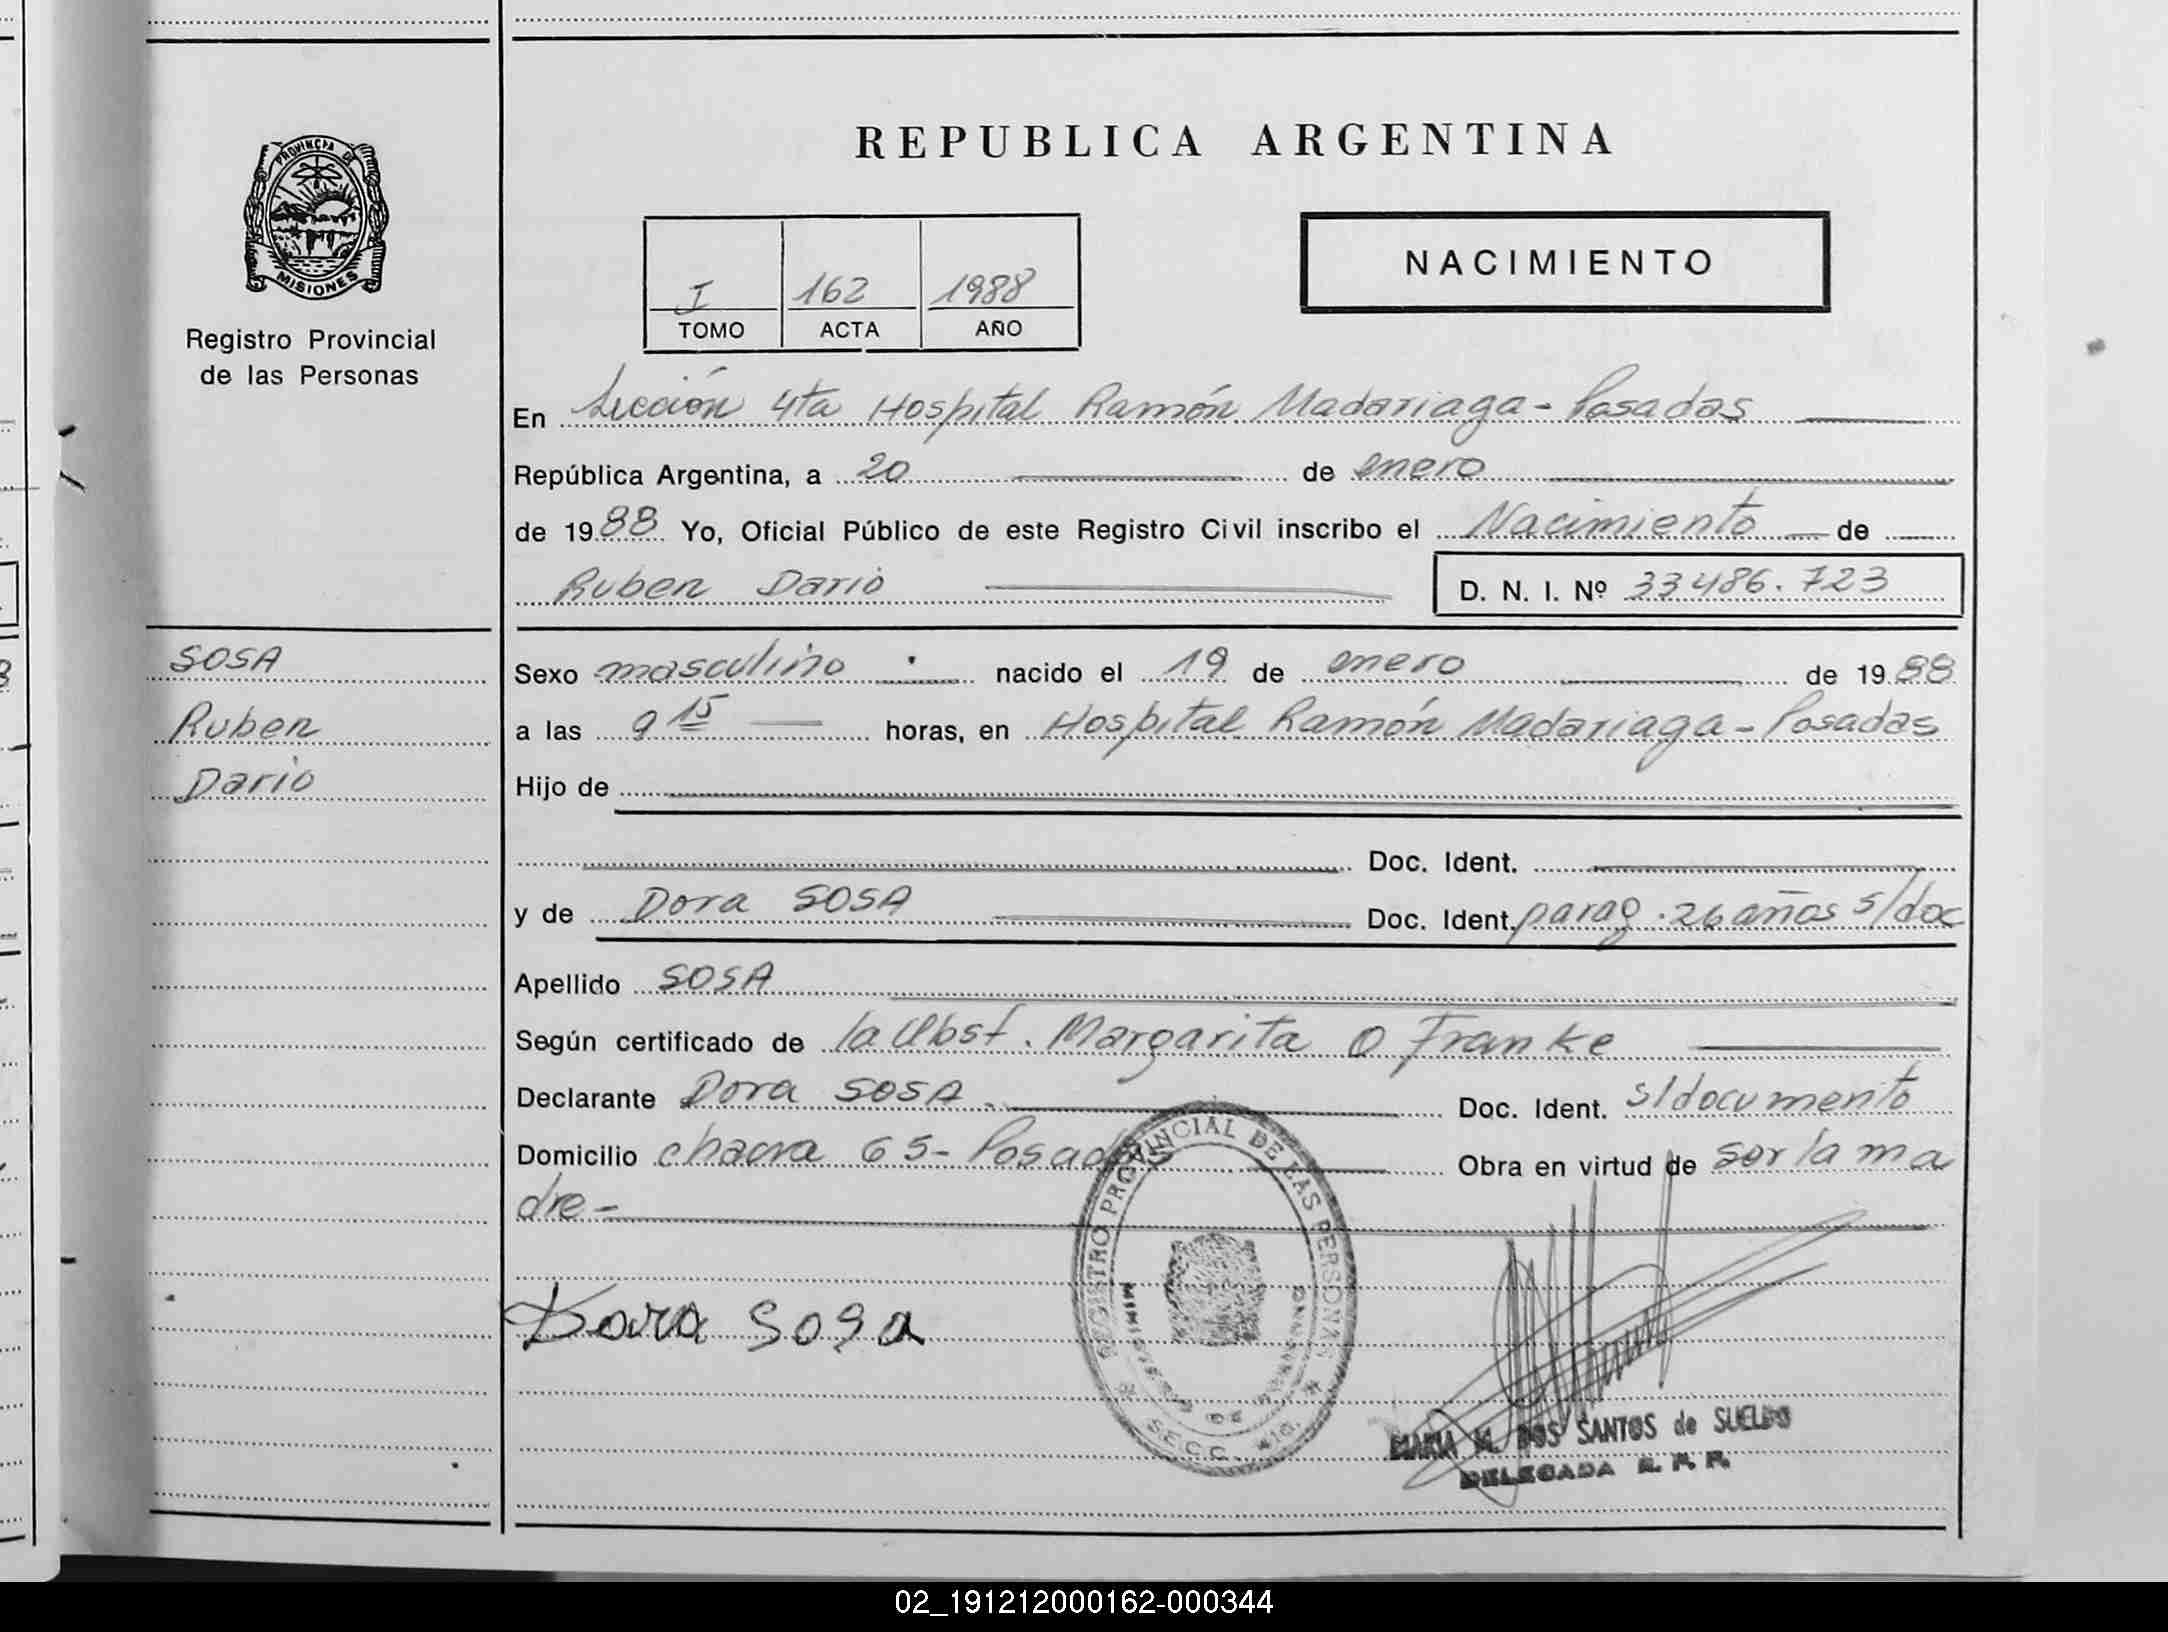 PROVINCIA DE
MISIONES
Registro Provincial
de las Personas
SOSA
Ruben
Dario
REPUBLICA ARGENTINA
I 162 1988
TOMO ACTA AÑO
NACIMIENTO
En Sección 4ta Hospital Ramón Madariaga - Posadas
República Argentina, a 20 de enero
de 1988 Yo, Oficial Público de este Registro Civil inscribo el Nacimiento de
Ruben Dario D. N. I. Nº 33486.723
Sexo masculino nacido el 19 de enero de 1988
a las 9 15 horas, en Hospital Ramón Madariaga - Posadas
Hijo de
Doc. Ident.
y de Dora SOSA Doc. Ident. parag. 26 años s/doc
Apellido SOSA
Según certificado de la Obst. Margarita O Franke
Declarante Dora SOSA. Doc. Ident. s/documento
Domicilio chacra 65 - Posadas Obra en virtud de ser la ma
dre -
Dora Sosa
REGISTRO PROVINCIAL DE LAS PERSONAS
MINISTERIO DE GOBIERNO
MARIA M. DOS SANTOS de SUELDO
DELEGADA R. P. P.
02_191212000162-000344